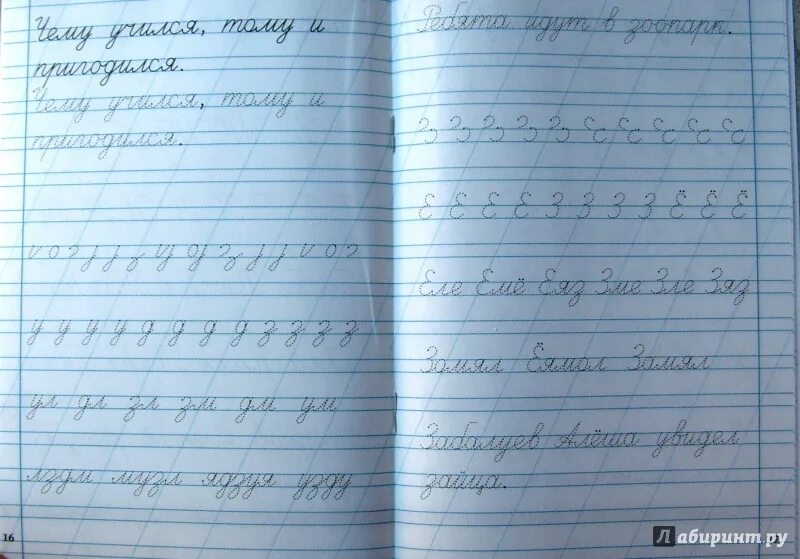 Чему учился, тому и
пригодился.
Чему учился, тому и
пригодился.
у у у у д д д д д з з з з
ул дл зл зм дм ум
лздм музл ядзуя узду
16
Ребята идут в зоопарк.
Е Е Е Е З З З З Ё Ё Ё
Еле Емё Еяз Зме Зле Зяз
Замял Ёямол Замял
Забалуев Алёша увидел
зайца.
Лабиринт.ру